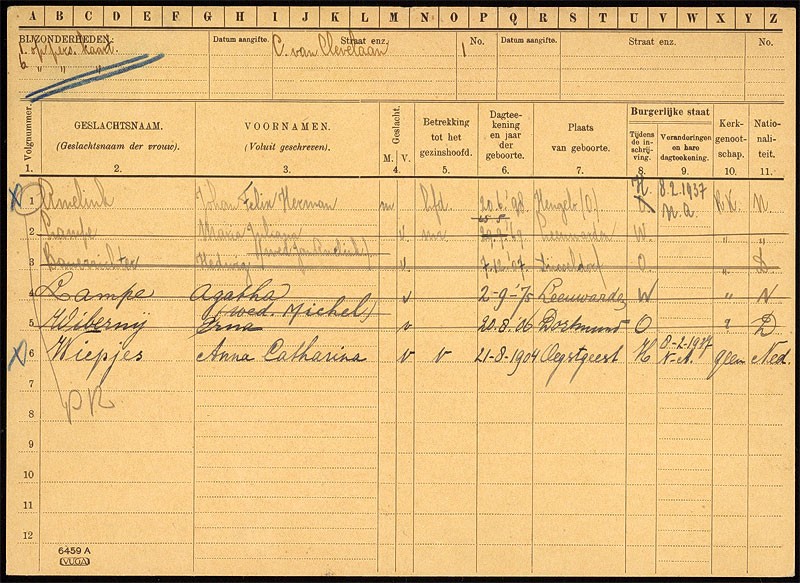 A B C D E F G H I J K L M N O P Q R S T U V W X Y Z
BIJZONDERHEDEN: Datum aangifte. Straat enz. No. Datum aangifte. Straat enz. No.
1. op pers. kaart. C. van Clevelaan 1
" " "
Volgnummer. GESLACHTSNAAM. (Geslachtsnaam der vrouw). VOORNAMEN. (Voluit geschreven). Geslacht. M. V. Betrekking tot het gezinshoofd. Dagteekening en jaar der geboorte. Plaats van geboorte. Burgerlijke staat Tijdens de inschrijving. Veranderingen en hare dagteekening. Kerkgenootschap. Nationaliteit.
1. 2. 3. 4. 5. 6. 7. 8. 9. 10. 11.
1 Amelink Johan Felix Herman m Hfd. 20.6.'98 Hengelo (O) H. 8.2.1937 N.A. R.K. N
2 Lampe Maria Juliana v. 29.9.'69 Leeuwarden W. " "
3 Hedwig v. 7.12.'07 Düsseldorf O. " D
4 Lampe Agatha v 2-9-'75 Leeuwarden W " N
(wed. Michels)
5 Wiberny Erna v 20.8.'06 Dortmund O " D
6 Wiepjes Anna Catharina v v 21-8-1904 Oegstgeest H N.A. geen Ned.
7
PR
8
9
10
11
12
6459 A
VUGA